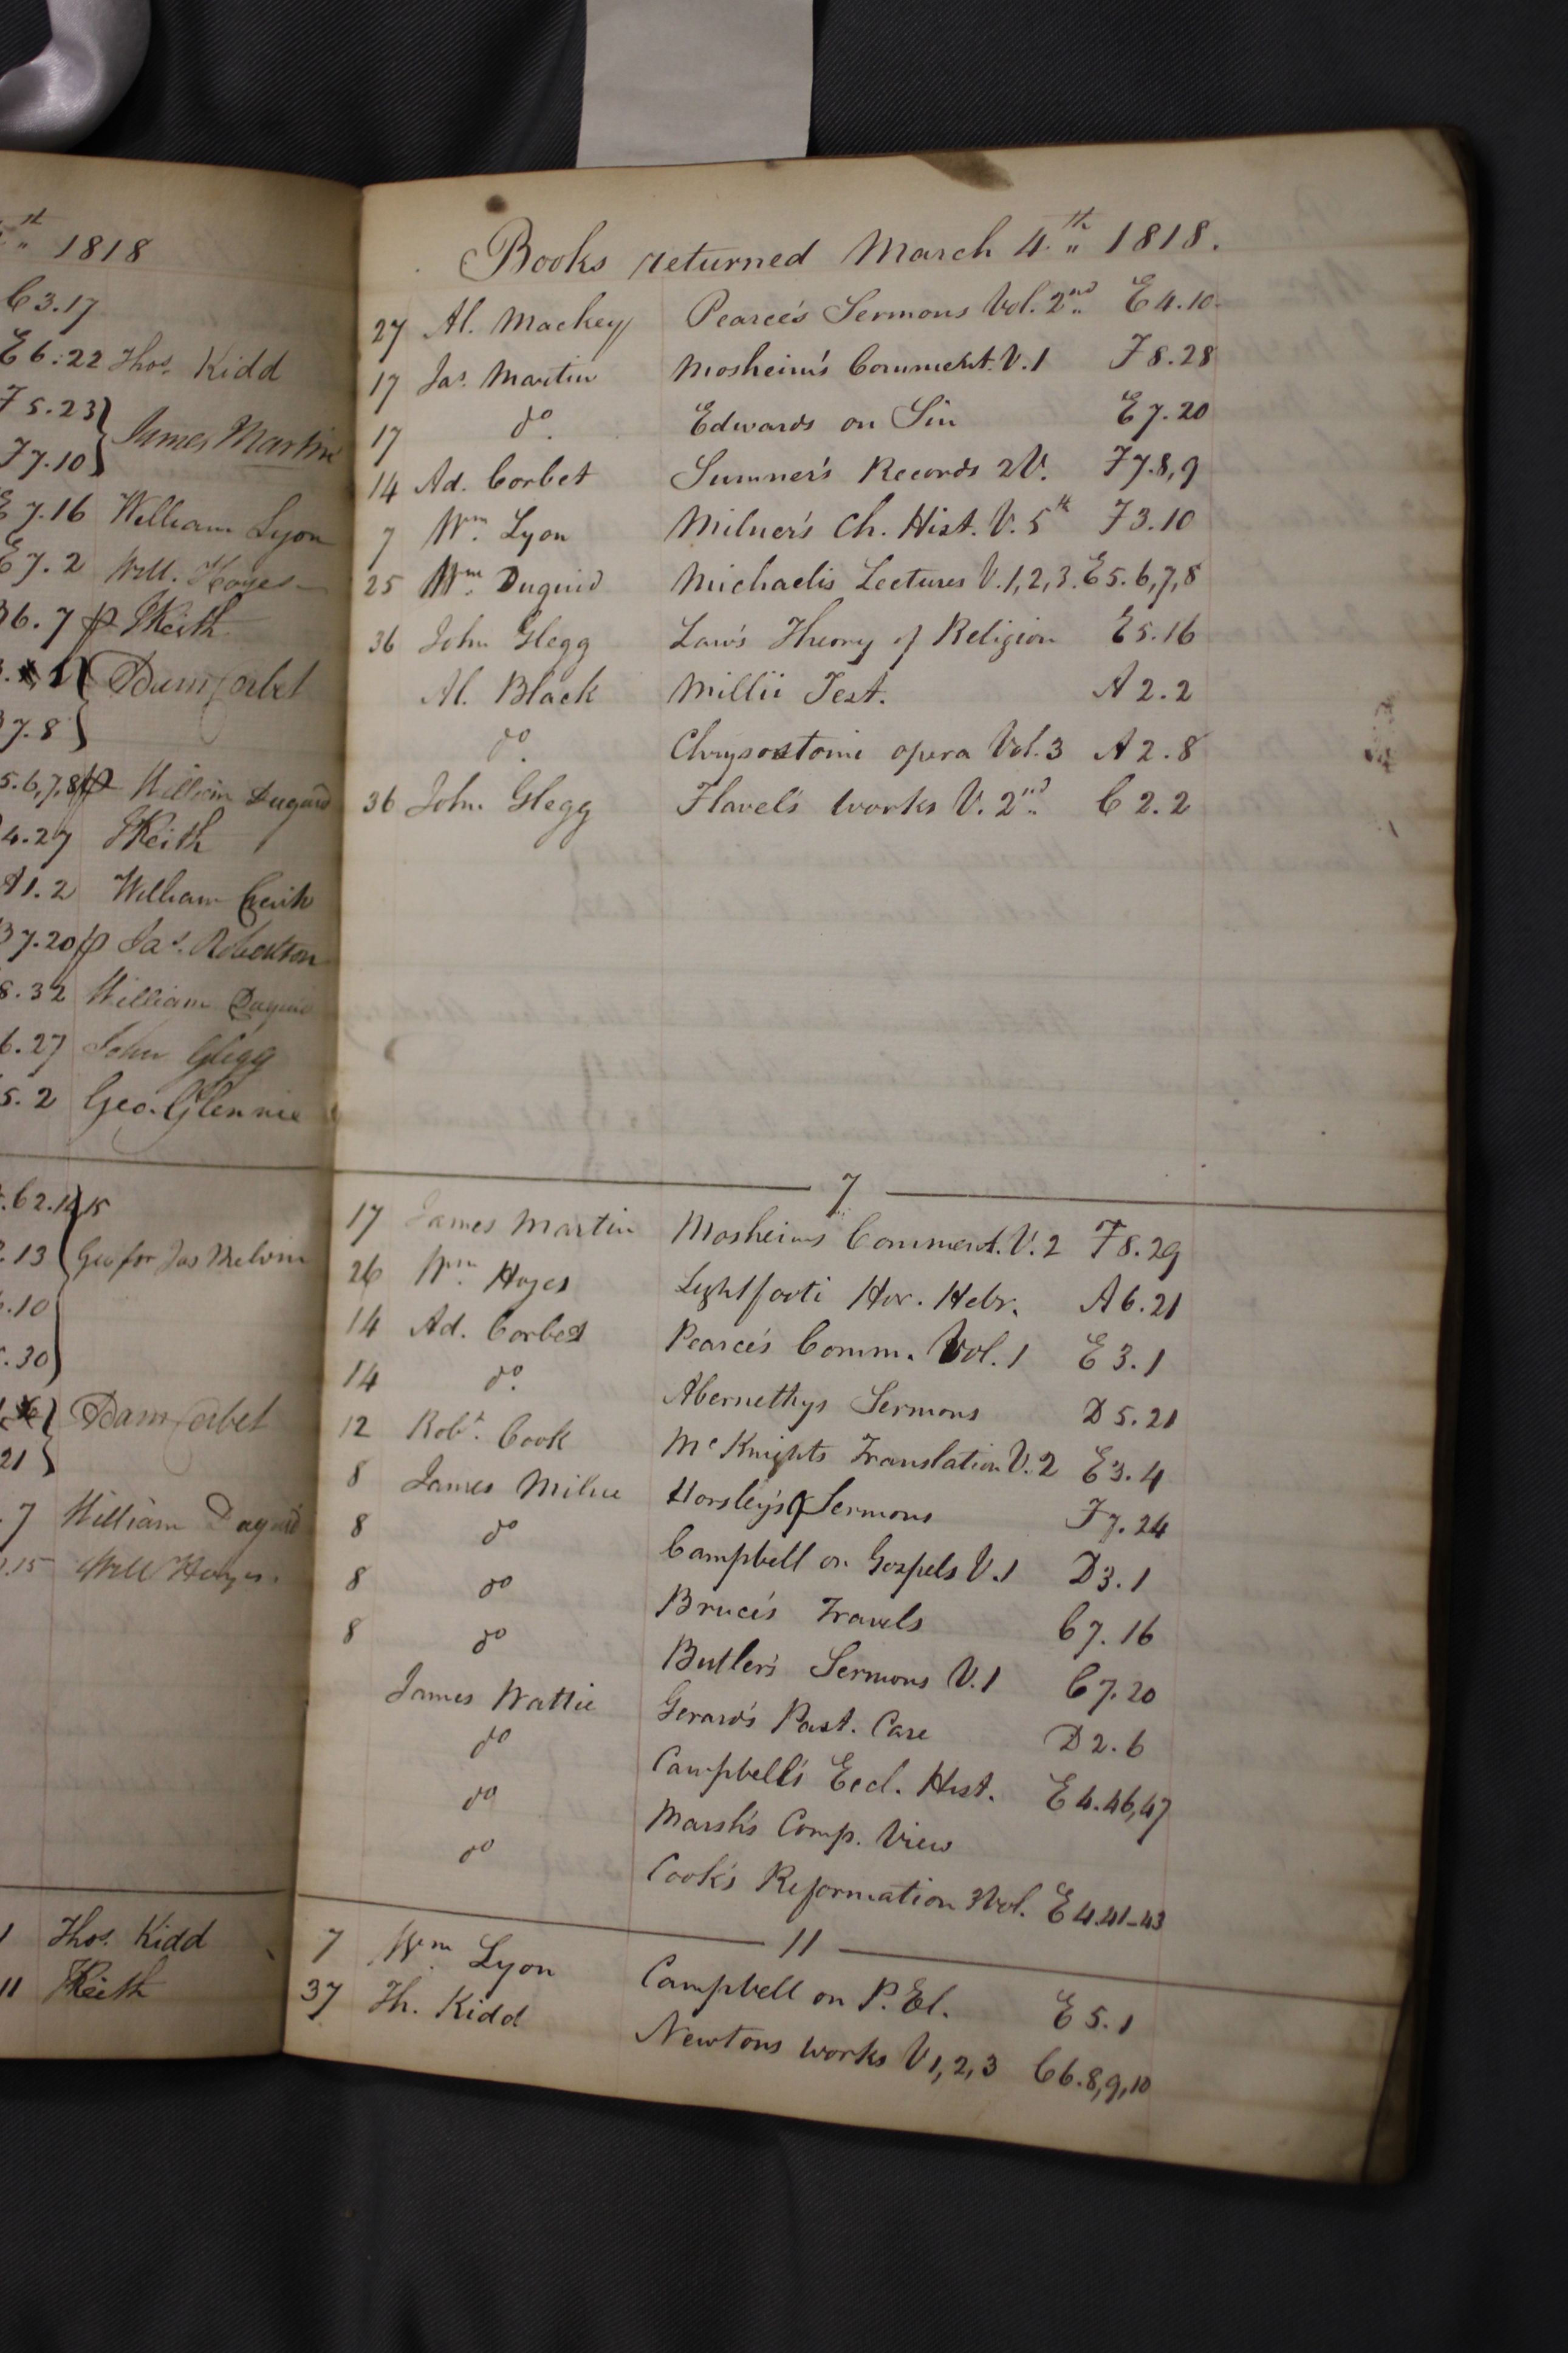 th 1818
C3.17
E6.22 Thos. Kidd
F5.23
F7.10 James Martin
E7.16 William Lyon
E7.2 Will. Hayes
B6.7 p J Keith
Adam Corbet
7.8
5.6,7,8 p William Duguid
4.27 J Keith
A1.2 William
B7.20 p Jas. Robertson
8.32 William Duguid
6.27 John Glegg
5.2 Geo. Glennie
C2.14,15
.13 Geo for Jas Melvin
.10
.30
Adam Corbet
21
.7 William Duguid
.15 Will Hayes.
1 Thos. Kidd
11 J Keith
Books returned March 4.th 1818.
27 Al. Mackey Pearce's Sermons Vol. 2nd E4.10
17 Jas. Martin Mosheim's Comment. V.1 F8.28
17 do. Edwards on Sin E7.20
14 Ad. Corbet Sumner's Records 2V. F7.8,9
7 Wm. Lyon Milner's Ch. Hist. V. 5th F3.10
25 Wm. Duguid Michaelis Lectures V.1,2,3. E5.6,7,8
36 John Glegg Law's Theory of Religion E5.16
Al. Black Millii Test. A2.2
do. Chrysostomi opera Vol. 3 A2.8
36 John Glegg Flavel's works V. 2nd C2.2
7
17 James Martin Mosheims Comment. V.2 F8.29
26 Wm. Hayes Lightfooti Hor. Hebr. A6.21
14 Ad. Corbet Pearce's Comm. Vol. 1 E3.1
14 do. Abernethys Sermons D5.21
12 Robt. Cook McKnights Translation V.2 E3.4
8 James Milne Horsley's Sermons F7.24
8 do Campbell on Gospels V.1 D3.1
8 do Bruce's Travels C7.16
8 do Butler's Sermons V.1 C7.20
James Wattie Gerard's Past. Care D2.6
do Campbell's Eccl. Hist. E4.46,47
do Marsh's Comp. View
do Cook's Reformation 3Vol. E4.41-43
11
7 Wm. Lyon Campbell on P. El. E5.1
37 Th. Kidd Newtons works V1,2,3 C6.8,9,10